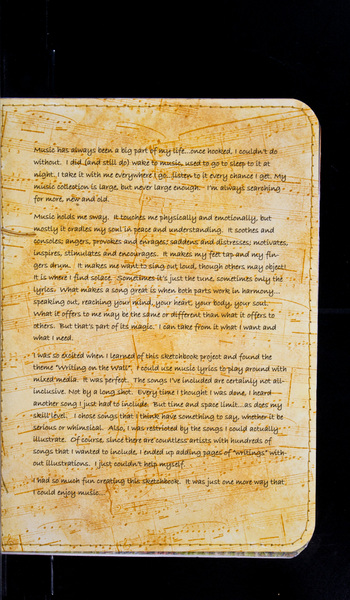 Music has always been a big part of my life...once hooked, I couldn't do
without. I did (and still do) wake to music, used to go to sleep to it at
night. I take it with me everywhere I go, listen to it every chance I get. My
music collection is large, but never large enough. I'm always searching
for more, new and old.
Music holds me sway. It touches me physically and emotionally, but
mostly it cradles my soul in peace and understanding. It soothes and
consoles; angers, provokes and enrages; saddens and distresses; motivates,
inspires, stimulates and encourages. It makes my feet tap and my fin-
gers drum. It makes me want to sing out loud, though others may object!
It is where I find solace. Sometimes it's just the tune, sometimes only the
lyrics. What makes a song great is when both parts work in harmony...
speaking out, reaching your mind, your heart, your body, your soul.
What it offers to me may be the same or different than what it offers to
others. But that's part of its magic. I can take from it what I want and
what I need.
I was so excited when I learned of this sketchbook project and found the
theme "Writing on the Wall". I could use music lyrics to play around with
mixed media. It was perfect. The songs I've included are certainly not all-
inclusive. Not by a long shot. Every time I thought I was done, I heard
another song I just had to include. But time and space limit...as does my
skill level. I chose songs that I think have something to say, whether it be
serious or whimsical. Also, I was restricted by the songs I could actually
illustrate. Of course, since there are countless artists with hundreds of
songs that I wanted to include, I ended up adding pages of "writings" with-
out illustrations. I just couldn't help myself.
I had so much fun creating this sketchbook. It was just one more way that
I could enjoy music...